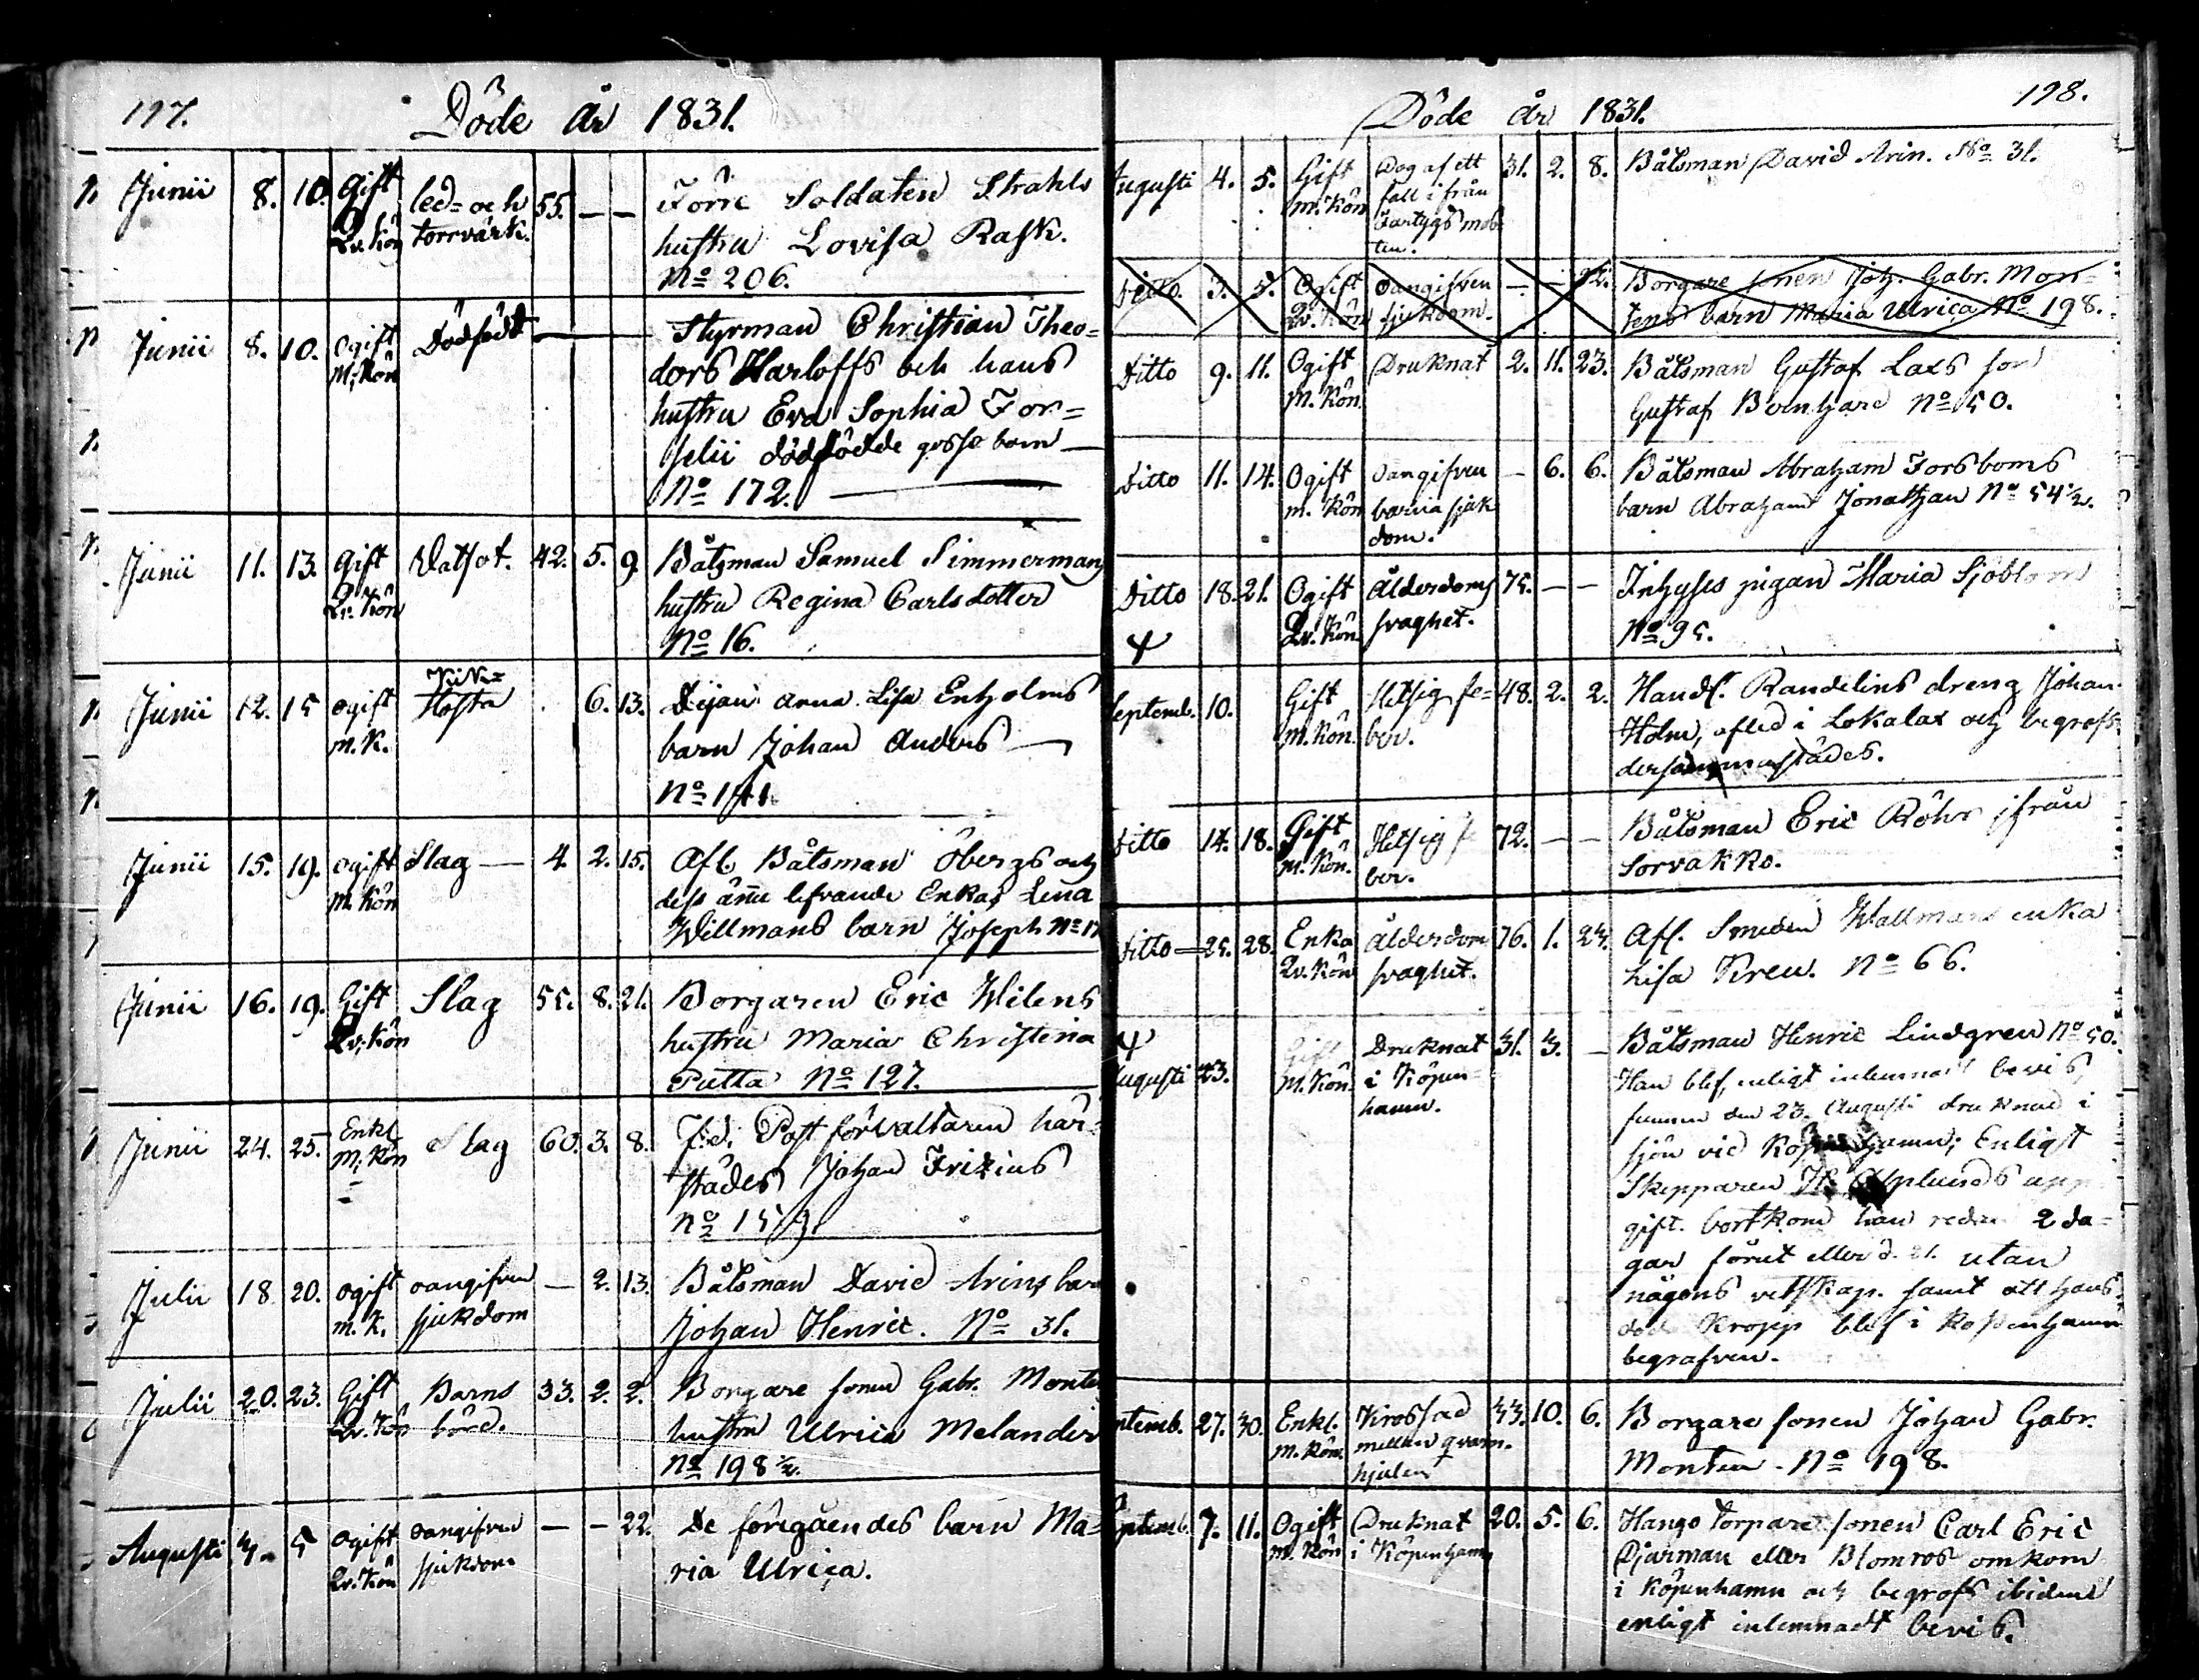 197.
Döde år 1831.
Junii 8. 10. Gift Led- och 55. — — Förre Soldaten Strahls
Qv. Kön torrvärk. hustru Lovisa Rask.
No 206.
Junii 8. 10. Ogift Dödfödt — Styrman Christian Theo-
M. Kön dors Harloffs och hans
hustru Eva Sophia For-
selii dödfödde gosse barn —
No 172.
Junii 11. 13. Gift Watsot. 42. 5. 9 Båtsman Samuel Simmermans
Qv. Kön hustru Regina Carlsdotter
No 16.
Junii 12. 15 Ogift Kik- 6. 13. Pijan Anna Lisa Enholms
m. K. Hosta barn Johan Anders —
Junii 15. 19. Ogift Slag — 4. 2. 15. Afl. Båtsman Öbergs och
M. Kön dess ännu lefvande Enkas Lena
Willmans barn Joseph No
Junii 16. 19. Gift Slag 55. 8. 21. Borgaren Eric Wilens
Qv. Kön hustru Maria Christina
Putta No 127.
Junii 24. 25. Enkl. Slag 60. 3. 8. F.d. Post förvaltaren här-
M. Kön städes Johan Frizius
No 159.
Julii 18 20. Ogift oangifven — 2. 13. Båtsman David Arins barn
m. K. sjukdom Johan Henric. No 31.
Julii 20. 23. Gift Barns 33. 2. 2. Borgare sonen Gabr. Montens
Qv. Kön börd. hustru Ulrica Melander
No 198 ½.
Augusti 3. 5 Ogift oangifven — — 22. De föregåendes barn Ma-
Qv. Kön sjukdom ria Ulrica.
198.
Döde år 1831.
Augusti 4. 5. Gift Dog af ett 31. 2. 8. Båtsman David Arin. No 31.
m. Kön fall ifrån
Fartygs mas-
ten.
Ditto. 3. 5. Ogift oangifven — — 22. Borgare sonen Joh. Gabr. Mon-
Qv. Kön sjukdom. tens barn Maria Ulrica No 198.
Ditto 9. 11. Ogift Druknat 2. 11. 23. Båtsman Gustaf Laxs son
M. Kön Gustaf Bernhard No 50.
Ditto 11. 14. Ogift oangifven — 6. 6. Båtsman Abraham Forsboms
m. Kön barna sjuk barn Abraham Jonathan No 54 ½.
dom.
Ditto 18. 21. Ogift Ålderdoms 75. — — Inhyses pigan Maria Sjöblom
Qv. Kön svaghet. No 95.
Septemb. 10. Gift Hetsig fe- 48. 2. 2. Handl. Randelins dreng Johan
m. Kön. ber. Holm, afled i Lokalax och begrofs
dersammastädes.
Ditto 14. 18. Gift Hetsig fe 72. — — Båtsman Eric Röhr ifrån
M. Kön. ber. Sorvakko.
Ditto — 25. 28. Enka Ålderdom 76. 1. 24. Afl. Smeden Wallmans enka
Qv. Kön svaghet. Lisa Kreu. No 66.
Augusti 23. Gift Druknat 31. 3. — Båtsman Henric Lindgren No 50.
M. Kön. i Köpen- Han blef, enligt inlemnadt bevis,
hamn. funnen den 23. Augusti druknad i
sjön vid Köpenhamn; Enligt
Skepparen H. Asplunds upp
gift bortkom han redan 2 da-
gar förut eller d. 21. utan
någons vetskap. samt att hans
döda Kropp blef i Köpenhamn
begrafven.
Septemb. 27. 30. Enkl. Krossad 33. 10. 6. Borgare sonen Johan Gabr.
M. Kön. mellan qvarn- Monten. No 198.
hjulen
Septemb. 7. 11. Ogift Druknat 20. 5. 6. Hango Torpare sonen Carl Eric
m. Kön i Köpenhamn Djarman eller Blomros omkom
i Köpenhamn och begrofs ibidem
enligt inlemnadt bevis.